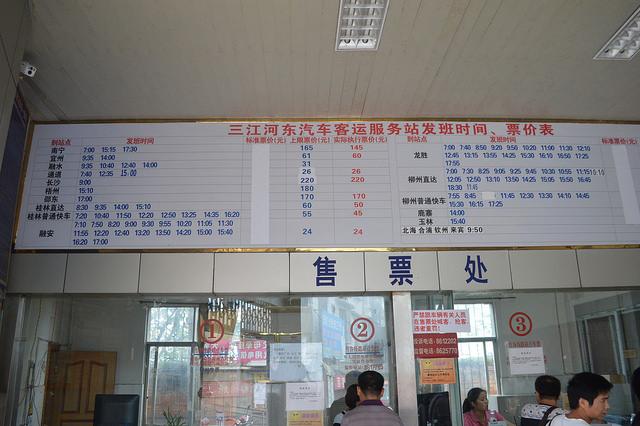 三江河东汽车客运服务站发班时间、票价表
到站点 发班时间 标准票价(元) 上限票价(元) 实际执行票价(元) 到站点 发班时间 标准票价(元)
南宁 7:00 15:15 17:30 165 145
宜州 9:35 14:00 61 60
融水 9:35 10:40 12:40 14:00 31
通道 7:40 12:35 15:00 26 26
长沙 9:00 220 220
梧州 15:10 180
邵东 17:00 170 170
桂林直达 8:30 9:35 14:00 15:10 60 50
桂林普通快车 7:20 10:40 11:50 12:20 12:50 13:25 14:25 16:20 55 45
融安 7:10 7:50 8:20 9:00 9:30 9:55 10:20 11:05 11:30
11:55 12:20 12:40 13:20 13:50 14:20 15:00 15:40 24 24
16:20 17:00
龙胜 7:00 7:40 8:50 9:20 9:50 10:20 11:00 11:30 12:10
12:45 13:15 13:55 14:25 15:30 16:10 16:50 17:25
17:55
柳州直达 7:00 7:30 8:25 9:05 9:25 9:45 10:25 10:45 11:15
12:05 12:50 13:10 13:50 14:25 15:05 15:55 16:45
18:30
柳州普通快车 7:55 8:45 11:45 12:30 13:30 14:10 14:45
15:30 16:15 17:25
鹿寨 14:00
玉林 15:40
北海 合浦 钦州 来宾 9:50
售票处
1
2
3
严禁跟车辆有关人员
在售票处喊客、抢客
违者重罚!
投诉电话:8612202
监督电话:8625770